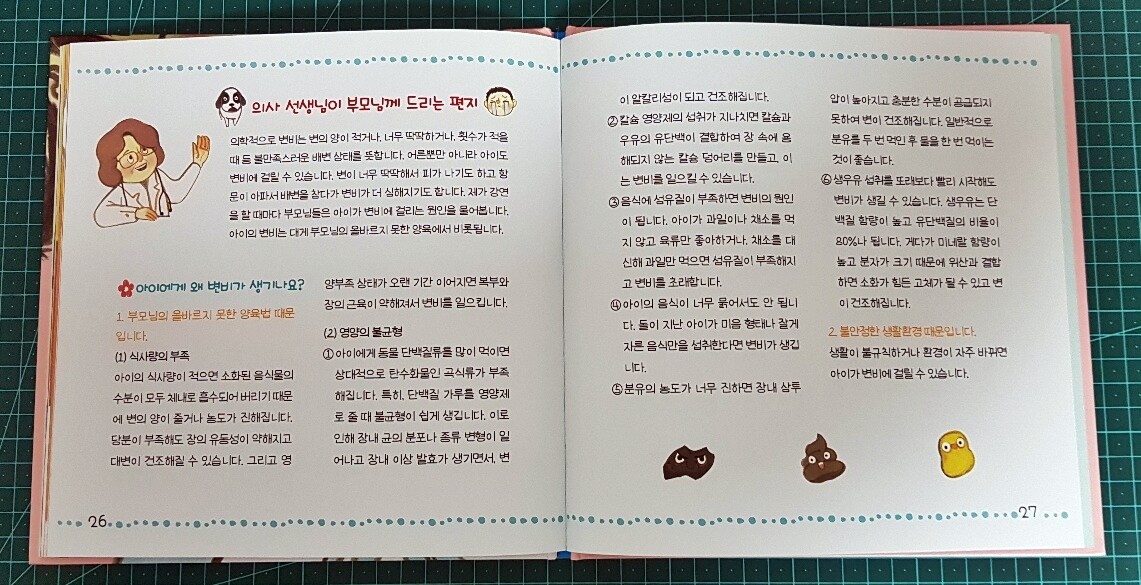 의사 선생님이 부모님께 드리는 편지
의학적으로 변비는 변의 양이 적거나, 너무 딱딱하거나, 횟수가 적을
때 등 불만족스러운 배변 상태를 뜻합니다. 어른뿐만 아니라 아이도
변비에 걸릴 수 있습니다. 변이 너무 딱딱해서 피가 나기도 하고 항
문이 아파서 배변을 참다가 변비가 더 심해지기도 합니다. 제가 강연
을 할 때마다 부모님들은 아이가 변비에 걸리는 원인을 물어봅니다.
아이의 변비는 대게 부모님의 올바르지 못한 양육에서 비롯됩니다.
아이에게 왜 변비가 생기나요?
1. 부모님의 올바르지 못한 양육법 때문
입니다.
(1) 식사량의 부족
아이의 식사량이 적으면 소화된 음식물의
수분이 모두 체내로 흡수되어 버리기 때문
에 변의 양이 줄거나 농도가 진해집니다.
당분이 부족해도 장의 유동성이 약해지고
대변이 건조해질 수 있습니다. 그리고 영
양부족 상태가 오랜 기간 이어지면 복부와
장의 근육이 약해져서 변비를 일으킵니다.
(2) 영양의 불균형
① 아이에게 동물 단백질류를 많이 먹이면
상대적으로 탄수화물인 곡식류가 부족
해집니다. 특히, 단백질 가루를 영양제
로 줄 때 불균형이 쉽게 생깁니다. 이로
인해 장내 균의 분포나 종류 변형이 일
어나고 장내 이상 발효가 생기면서, 변
이 알칼리성이 되고 건조해집니다.
② 칼슘 영양제의 섭취가 지나치면 칼슘과
우유의 유단백이 결합하여 장 속에 용
해되지 않는 칼슘 덩어리를 만들고, 이
는 변비를 일으킬 수 있습니다.
③ 음식에 섬유질이 부족하면 변비의 원인
이 됩니다. 아이가 과일이나 채소를 먹
지 않고 육류만 좋아하거나, 채소를 대
신해 과일만 먹으면 섬유질이 부족해지
고 변비를 초래합니다.
④ 아이의 음식이 너무 묽어서도 안 됩니
다. 돌이 지난 아이가 미음 형태나 잘게
자른 음식만을 섭취한다면 변비가 생깁
니다.
⑤ 분유의 농도가 너무 진하면 장내 삼투
압이 높아지고 충분한 수분이 공급되지
못하여 변이 건조해집니다. 일반적으로
분유를 두 번 먹인 후 물을 한 번 먹이는
것이 좋습니다.
⑥ 생우유 섭취를 또래보다 빨리 시작해도
변비가 생길 수 있습니다. 생우유는 단
백질 함량이 높고 유단백질의 비율이
80%나 됩니다. 게다가 미네랄 함량이
높고 분자가 크기 때문에 위산과 결합
하면 소화가 힘든 고체가 될 수 있고 변
이 건조해집니다.
2. 불안정한 생활환경 때문입니다.
생활이 불규칙하거나 환경이 자주 바뀌면
아이가 변비에 걸릴 수 있습니다.
26
27